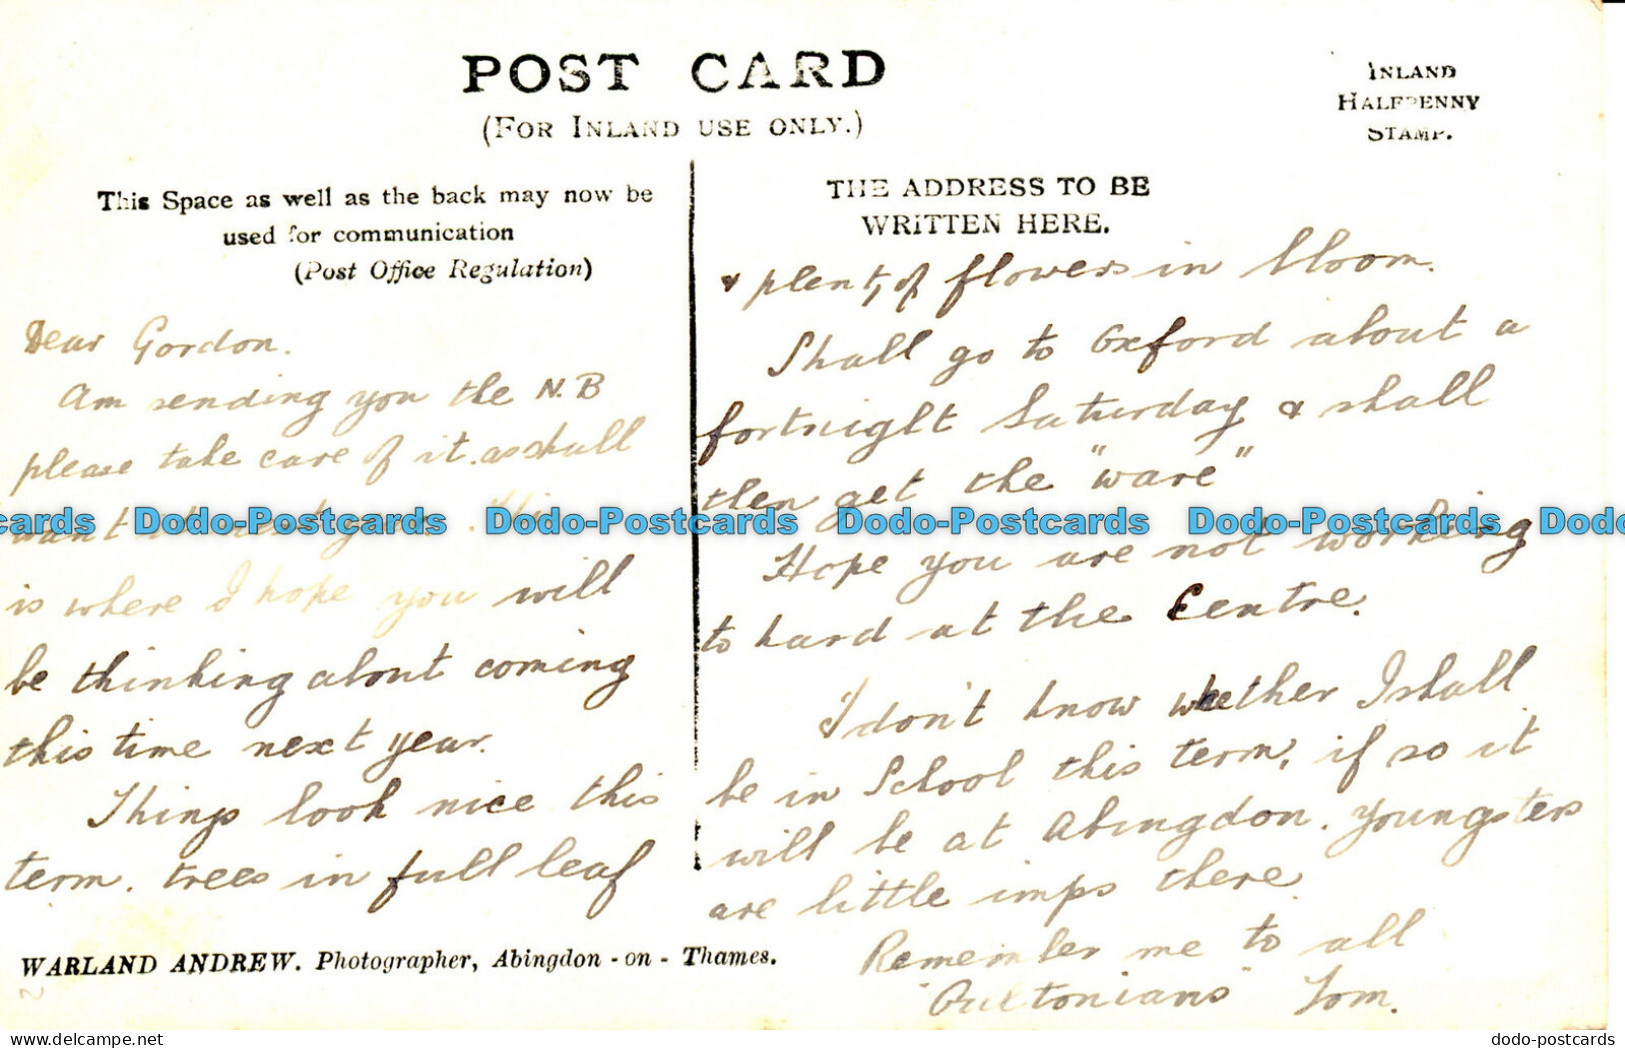 POST CARD
(FOR INLAND USE ONLY.)
INLAND
HALFPENNY
STAMP.
This Space as well as the back may now be
used for communication
(Post Office Regulation)
THE ADDRESS TO BE
WRITTEN HERE.
Dear Gordon.
Am sending you the N.B
please take care of it. as shall
want
is where I hope you will
be thinking about coming
this time next year.
Things look nice this
term. trees in full leaf
& plenty of flowers in bloom.
Shall go to Oxford about a
fortnight Saturday & shall
then get the "ware"
Hope you are not working
to hard at the Centre.
I don't know whether I shall
be in School this term, if so it
will be at Abingdon. Youngsters
are little imps there
Remember me to all
Tom.
WARLAND ANDREW. Photographer, Abingdon-on-Thames.
cards Dodo-Postcards Dodo-Postcards Dodo-Postcards Dodo-Postcards Dodo
dodo-postcards.delcampe.net dodo-postcards